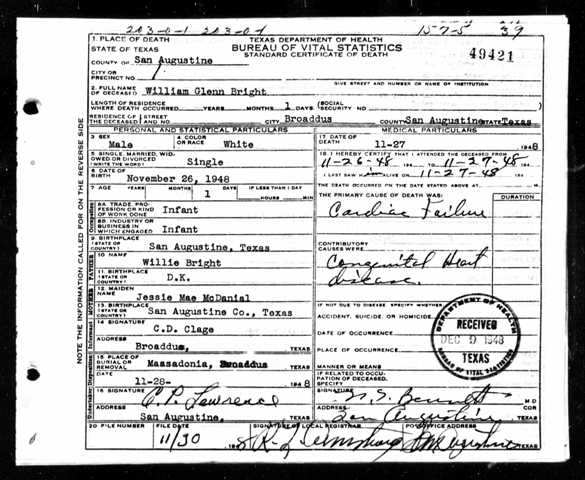 203-0-1 203-04 15-7-5 39
1. PLACE OF DEATH TEXAS DEPARTMENT OF HEALTH
STATE OF TEXAS BUREAU OF VITAL STATISTICS
STANDARD CERTIFICATE OF DEATH 49421
COUNTY OF San Augustine
CITY OR PRECINCT NO. 1
GIVE STREET AND NUMBER OR NAME OF INSTITUTION
2. FULL NAME OF DECEASED William Glenn Bright
LENGTH OF RESIDENCE WHERE DEATH OCCURRED YEARS MONTHS 1 DAYS (SOCIAL SECURITY NO.)
RESIDENCE OF THE DECEASED STREET AND NO. CITY Broaddus COUNTY San Augustine STATE Texas
PERSONAL AND STATISTICAL PARTICULARS
3. SEX Male 4. COLOR OR RACE White
5. SINGLE, MARRIED, WIDOWED OR DIVORCED (WRITE THE WORD) Single
6. DATE OF BIRTH November 26, 1948
7. AGE YEARS MONTHS DAYS 1 IF LESS THAN 1 DAY HOURS MIN.
8A. TRADE, PROFESSION OR KIND OF WORK DONE Infant
8B. INDUSTRY OR BUSINESS IN WHICH ENGAGED Infant
9. BIRTHPLACE (STATE OR COUNTRY) San Augustine, Texas
10. NAME Willie Bright
11. BIRTHPLACE (STATE OR COUNTRY) D.K.
12. MAIDEN NAME Jessie Mae McDanial
13. BIRTHPLACE (STATE OR COUNTRY) San Augustine Co., Texas
14. SIGNATURE C.D. Clage
ADDRESS Broaddus, TEXAS
15. PLACE OF BURIAL OR REMOVAL Massadonia, Broaddus TEXAS
DATE 11-28- 1948
16. SIGNATURE C. P. Lawrence
ADDRESS San Augustine, TEXAS
MEDICAL PARTICULARS
17. DATE OF DEATH 11-27 1948
18. I HEREBY CERTIFY THAT I ATTENDED THE DECEASED FROM
11-26-48 TO 11-27-48
I LAST SAW him ALIVE ON 11-27-48
THE DEATH OCCURRED ON THE DATE STATED ABOVE AT M.
THE PRIMARY CAUSE OF DEATH WAS: DURATION
Cardiac Failure
CONTRIBUTORY CAUSES WERE:
Congenital Heart
disease.
IF NOT DUE TO DISEASE, SPECIFY WHETHER
ACCIDENT, SUICIDE OR HOMICIDE
DATE OF OCCURRENCE
PLACE OF OCCURRENCE
MANNER OR MEANS
IF RELATED TO OCCUPATION OF DECEASED, SPECIFY
SIGNATURE Bennett M D
ADDRESS San Augustine TEXAS
DEPARTMENT OF HEALTH
RECEIVED
DEC 9 1948
TEXAS
BUREAU OF VITAL STATISTICS
20. FILE NUMBER FILE DATE SIGNATURE OF LOCAL REGISTRAR POSTOFFICE ADDRESS
11/30 194 8 TEXAS
NOTE THE INFORMATION CALLED FOR ON THE REVERSE SIDE
Occupation
FATHER
MOTHER
Informant
Undertaker Disposition